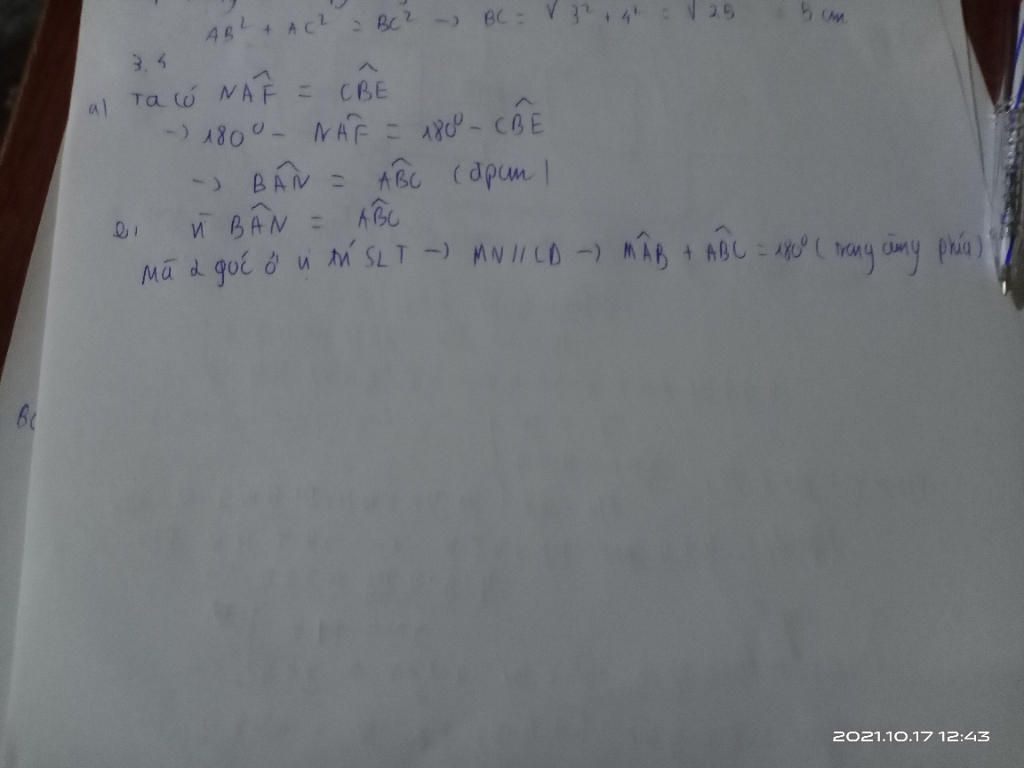 AB² + AC² = BC² → BC = √3² + 4² = √25 = 5 cm
3.4
a) Ta có NAF̂ = CBÊ
→ 180⁰ - NAF̂ = 180⁰ - CBÊ
→ BAN̂ = ABĈ (đpcm)
Vì BAN̂ = ABĈ
Mà 2 góc ở vị trí SLT → MN // CD → MAB̂ + ABĈ = 180⁰ (trong cùng phía)
BC
2021.10.17 12:43